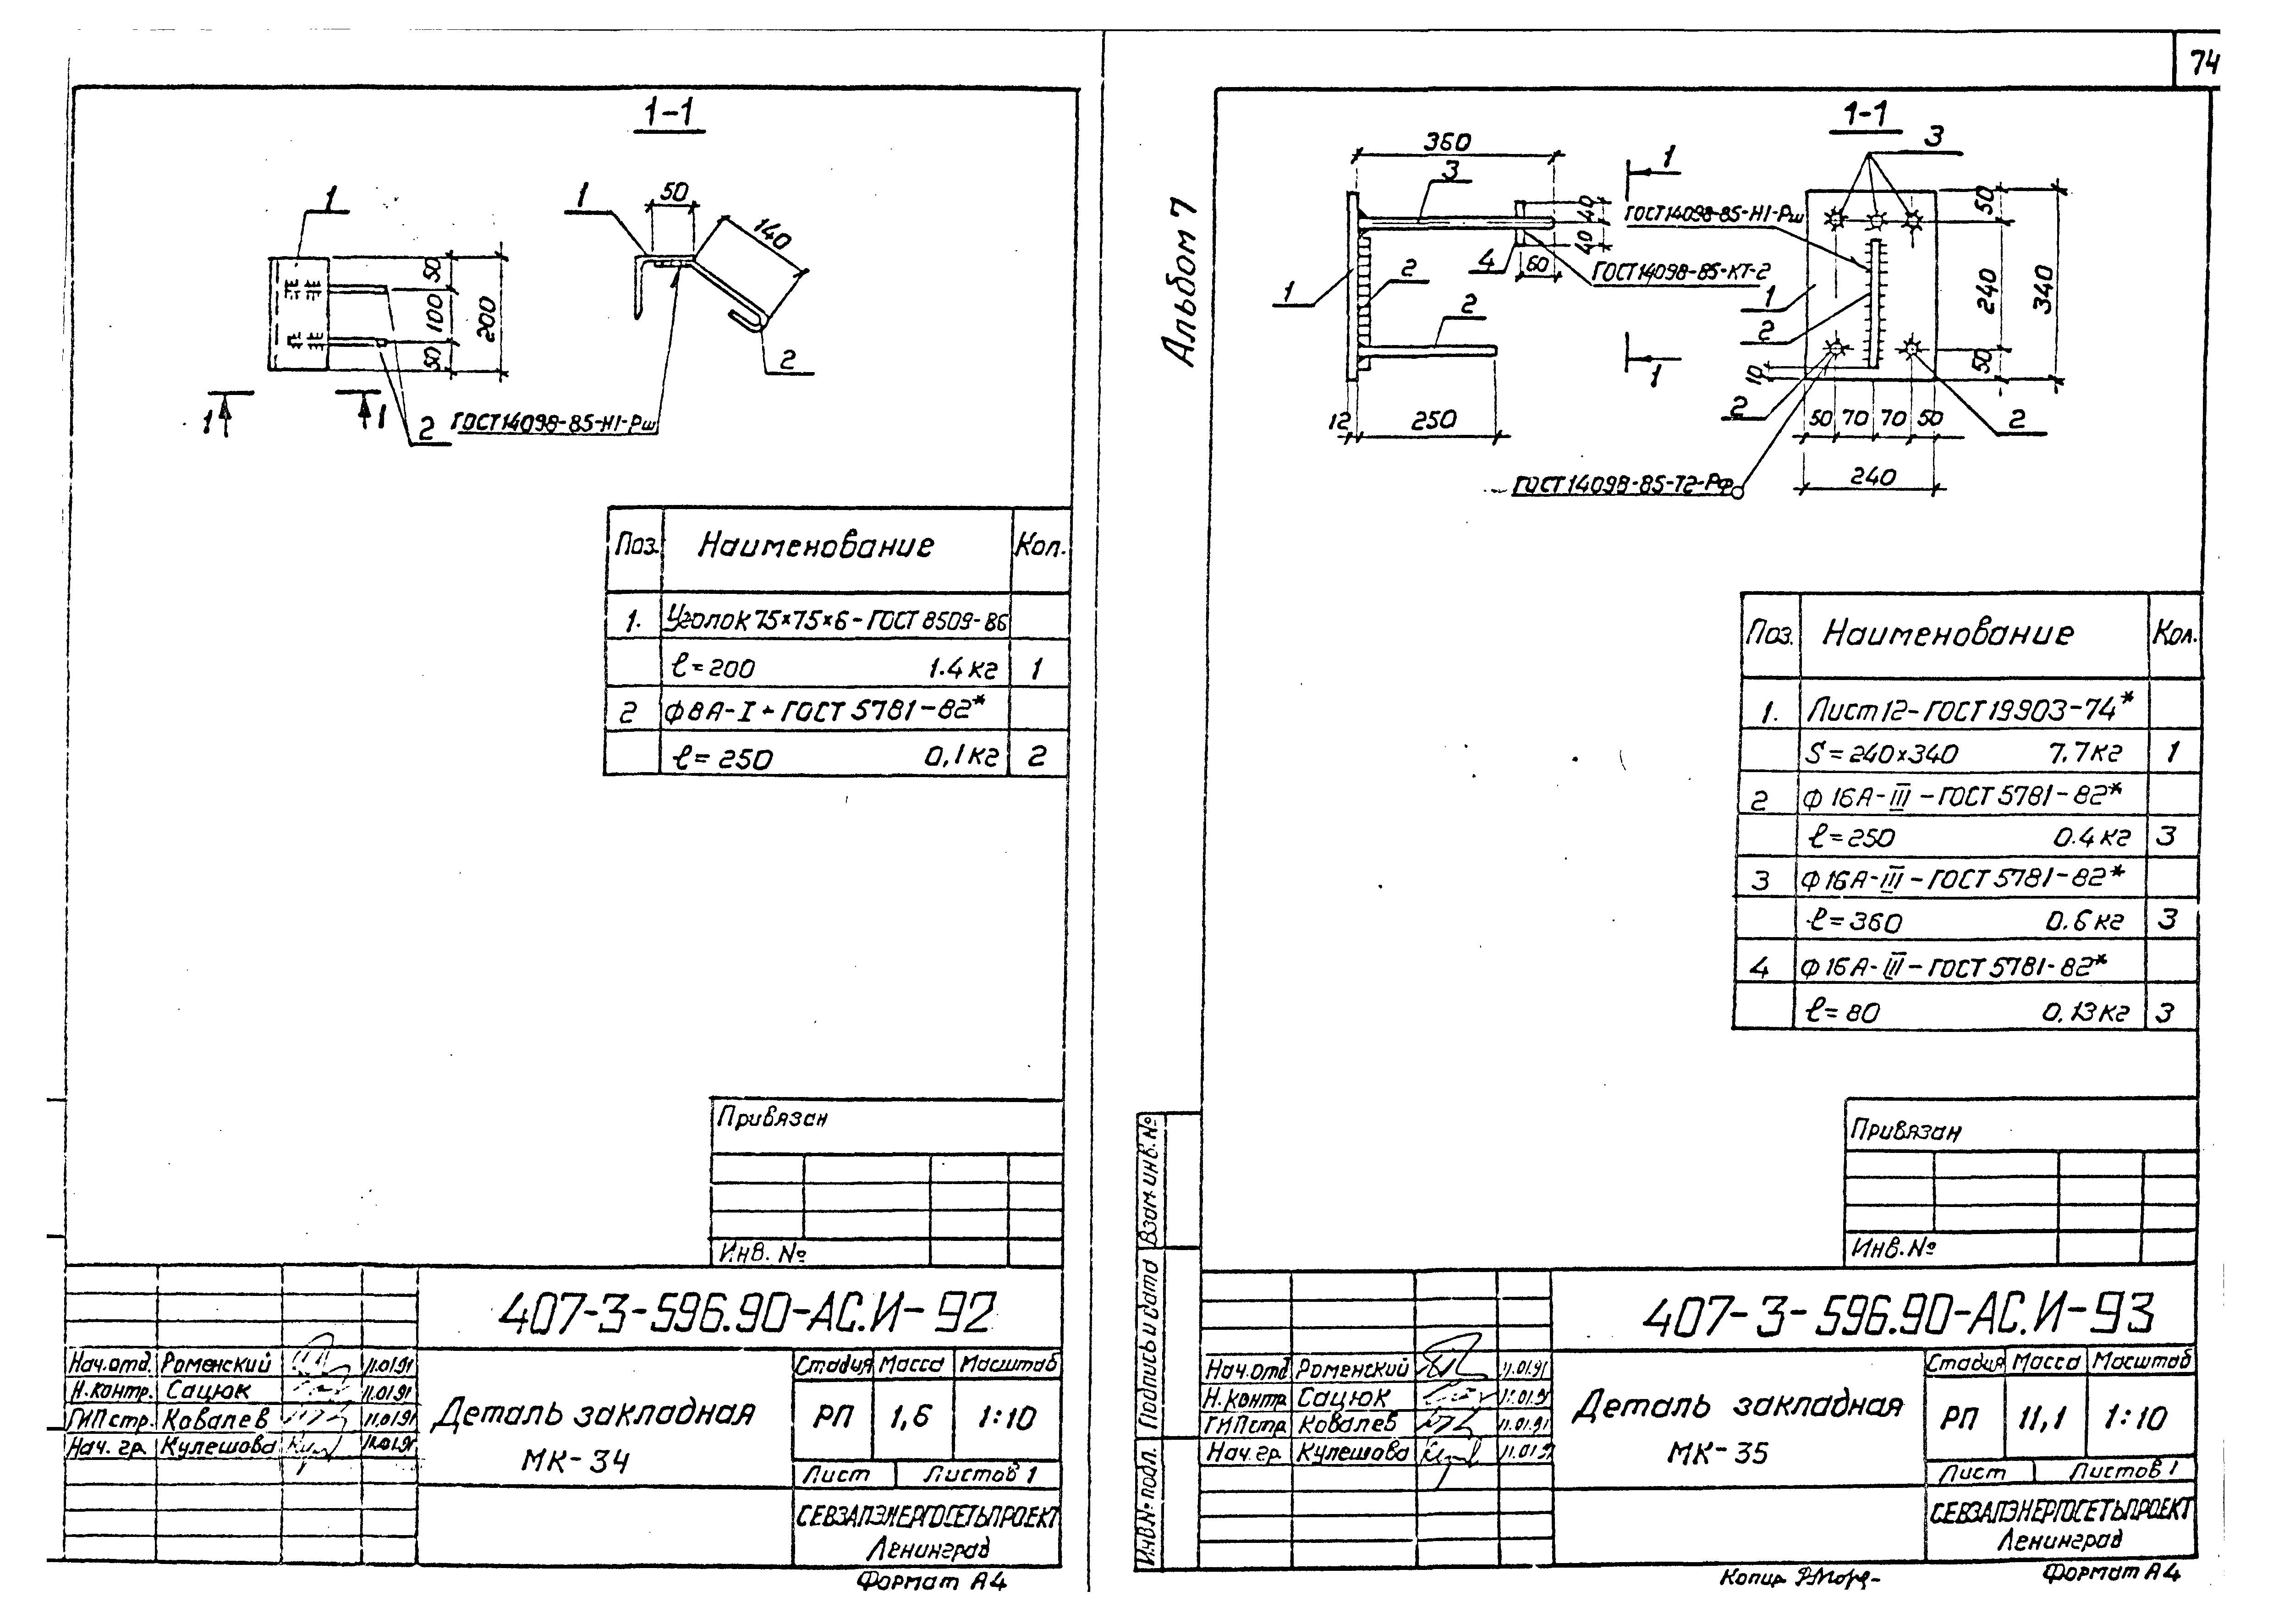 74
1-1
1
50
100
50
200
1
1
2
ГОСТ14098-85-Н1-Рш
1
50
140
2
Поз. Наименование Кол.
1. Уголок 75×75×6-ГОСТ 8509-86
ℓ=200 1.4кг 1
2 Ф8А-I-ГОСТ 5781-82*
ℓ=250 0,1кг 2
Привязан
Инв. №
407-3-596.90-АС.И-92
Нач.отд. Роменский 11.01.91
Н.контр. Сацюк 11.01.91
ГИПстр. Ковалев 11.01.91
Нач. гр. Кулешова 11.01.91
Деталь закладная
МК-34
Стадия Масса Масштаб
РП 1,6 1:10
Лист Листов 1
СЕВЗАПЭНЕРГОСЕТЬПРОЕКТ
Ленинград
Формат А4
Альбом 7
1-1
360
3
1
3
40
40
ГОСТ14098-85-Н1-Рш
50
4
60
ГОСТ14098-85-КТ-2
1
2
1
2
240
340
2
1
10
50
2
2
12
250
50 70 70 50
240
ГОСТ14098-85-Т2-Рф
Поз. Наименование Кол.
1. Лист 12-ГОСТ19903-74*
S=240×340 7.7кг 1
2 Ф16А-III-ГОСТ5781-82*
ℓ=250 0.4кг 3
3 Ф16А-III-ГОСТ5781-82*
ℓ=360 0.6кг 3
4 Ф16А-III-ГОСТ5781-82*
ℓ=80 0,13кг 3
Привязан
Инв.№
Взам.инв.№
Подпись и дата
Инв.№подл.
407-3-596.90-АС.И-93
Нач.отд Роменский 11.01.91
Н.контр. Сацюк 11.01.91
ГИПстр. Ковалев 11.01.91
Нач. гр. Кулешова 11.01.91
Деталь закладная
МК-35
Стадия Масса Масштаб
РП 11,1 1:10
Лист Листов 1
СЕВЗАПЭНЕРГОСЕТЬПРОЕКТ
Ленинград
Копир.
Формат А4